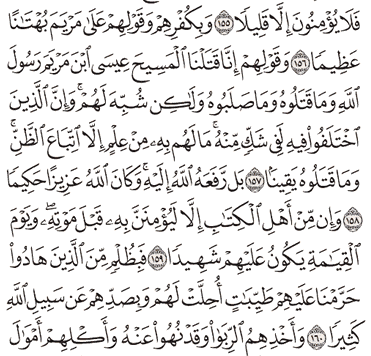 فَلَا يُؤْمِنُونَ إِلَّا قَلِيلًا ١٥٥ وَبِكُفْرِهِمْ وَقَوْلِهِمْ عَلَىٰ مَرْيَمَ بُهْتَٰنًا
عَظِيمًا ١٥٦ وَقَوْلِهِمْ إِنَّا قَتَلْنَا ٱلْمَسِيحَ عِيسَى ٱبْنَ مَرْيَمَ رَسُولَ
ٱللَّهِ وَمَا قَتَلُوهُ وَمَا صَلَبُوهُ وَلَٰكِن شُبِّهَ لَهُمْ ۚ وَإِنَّ ٱلَّذِينَ
ٱخْتَلَفُوا۟ فِيهِ لَفِى شَكٍّ مِّنْهُ ۚ مَا لَهُم بِهِۦ مِنْ عِلْمٍ إِلَّا ٱتِّبَاعَ ٱلظَّنِّ ۚ
وَمَا قَتَلُوهُ يَقِينًۢا ١٥٧ بَل رَّفَعَهُ ٱللَّهُ إِلَيْهِ ۚ وَكَانَ ٱللَّهُ عَزِيزًا حَكِيمًا
١٥٨ وَإِن مِّنْ أَهْلِ ٱلْكِتَٰبِ إِلَّا لَيُؤْمِنَنَّ بِهِۦ قَبْلَ مَوْتِهِۦ ۖ وَيَوْمَ
ٱلْقِيَٰمَةِ يَكُونُ عَلَيْهِمْ شَهِيدًا ١٥٩ فَبِظُلْمٍ مِّنَ ٱلَّذِينَ هَادُوا۟
حَرَّمْنَا عَلَيْهِمْ طَيِّبَٰتٍ أُحِلَّتْ لَهُمْ وَبِصَدِّهِمْ عَن سَبِيلِ ٱللَّهِ
كَثِيرًا ١٦٠ وَأَخْذِهِمُ ٱلرِّبَوٰا۟ وَقَدْ نُهُوا۟ عَنْهُ وَأَكْلِهِمْ أَمْوَٰلَ